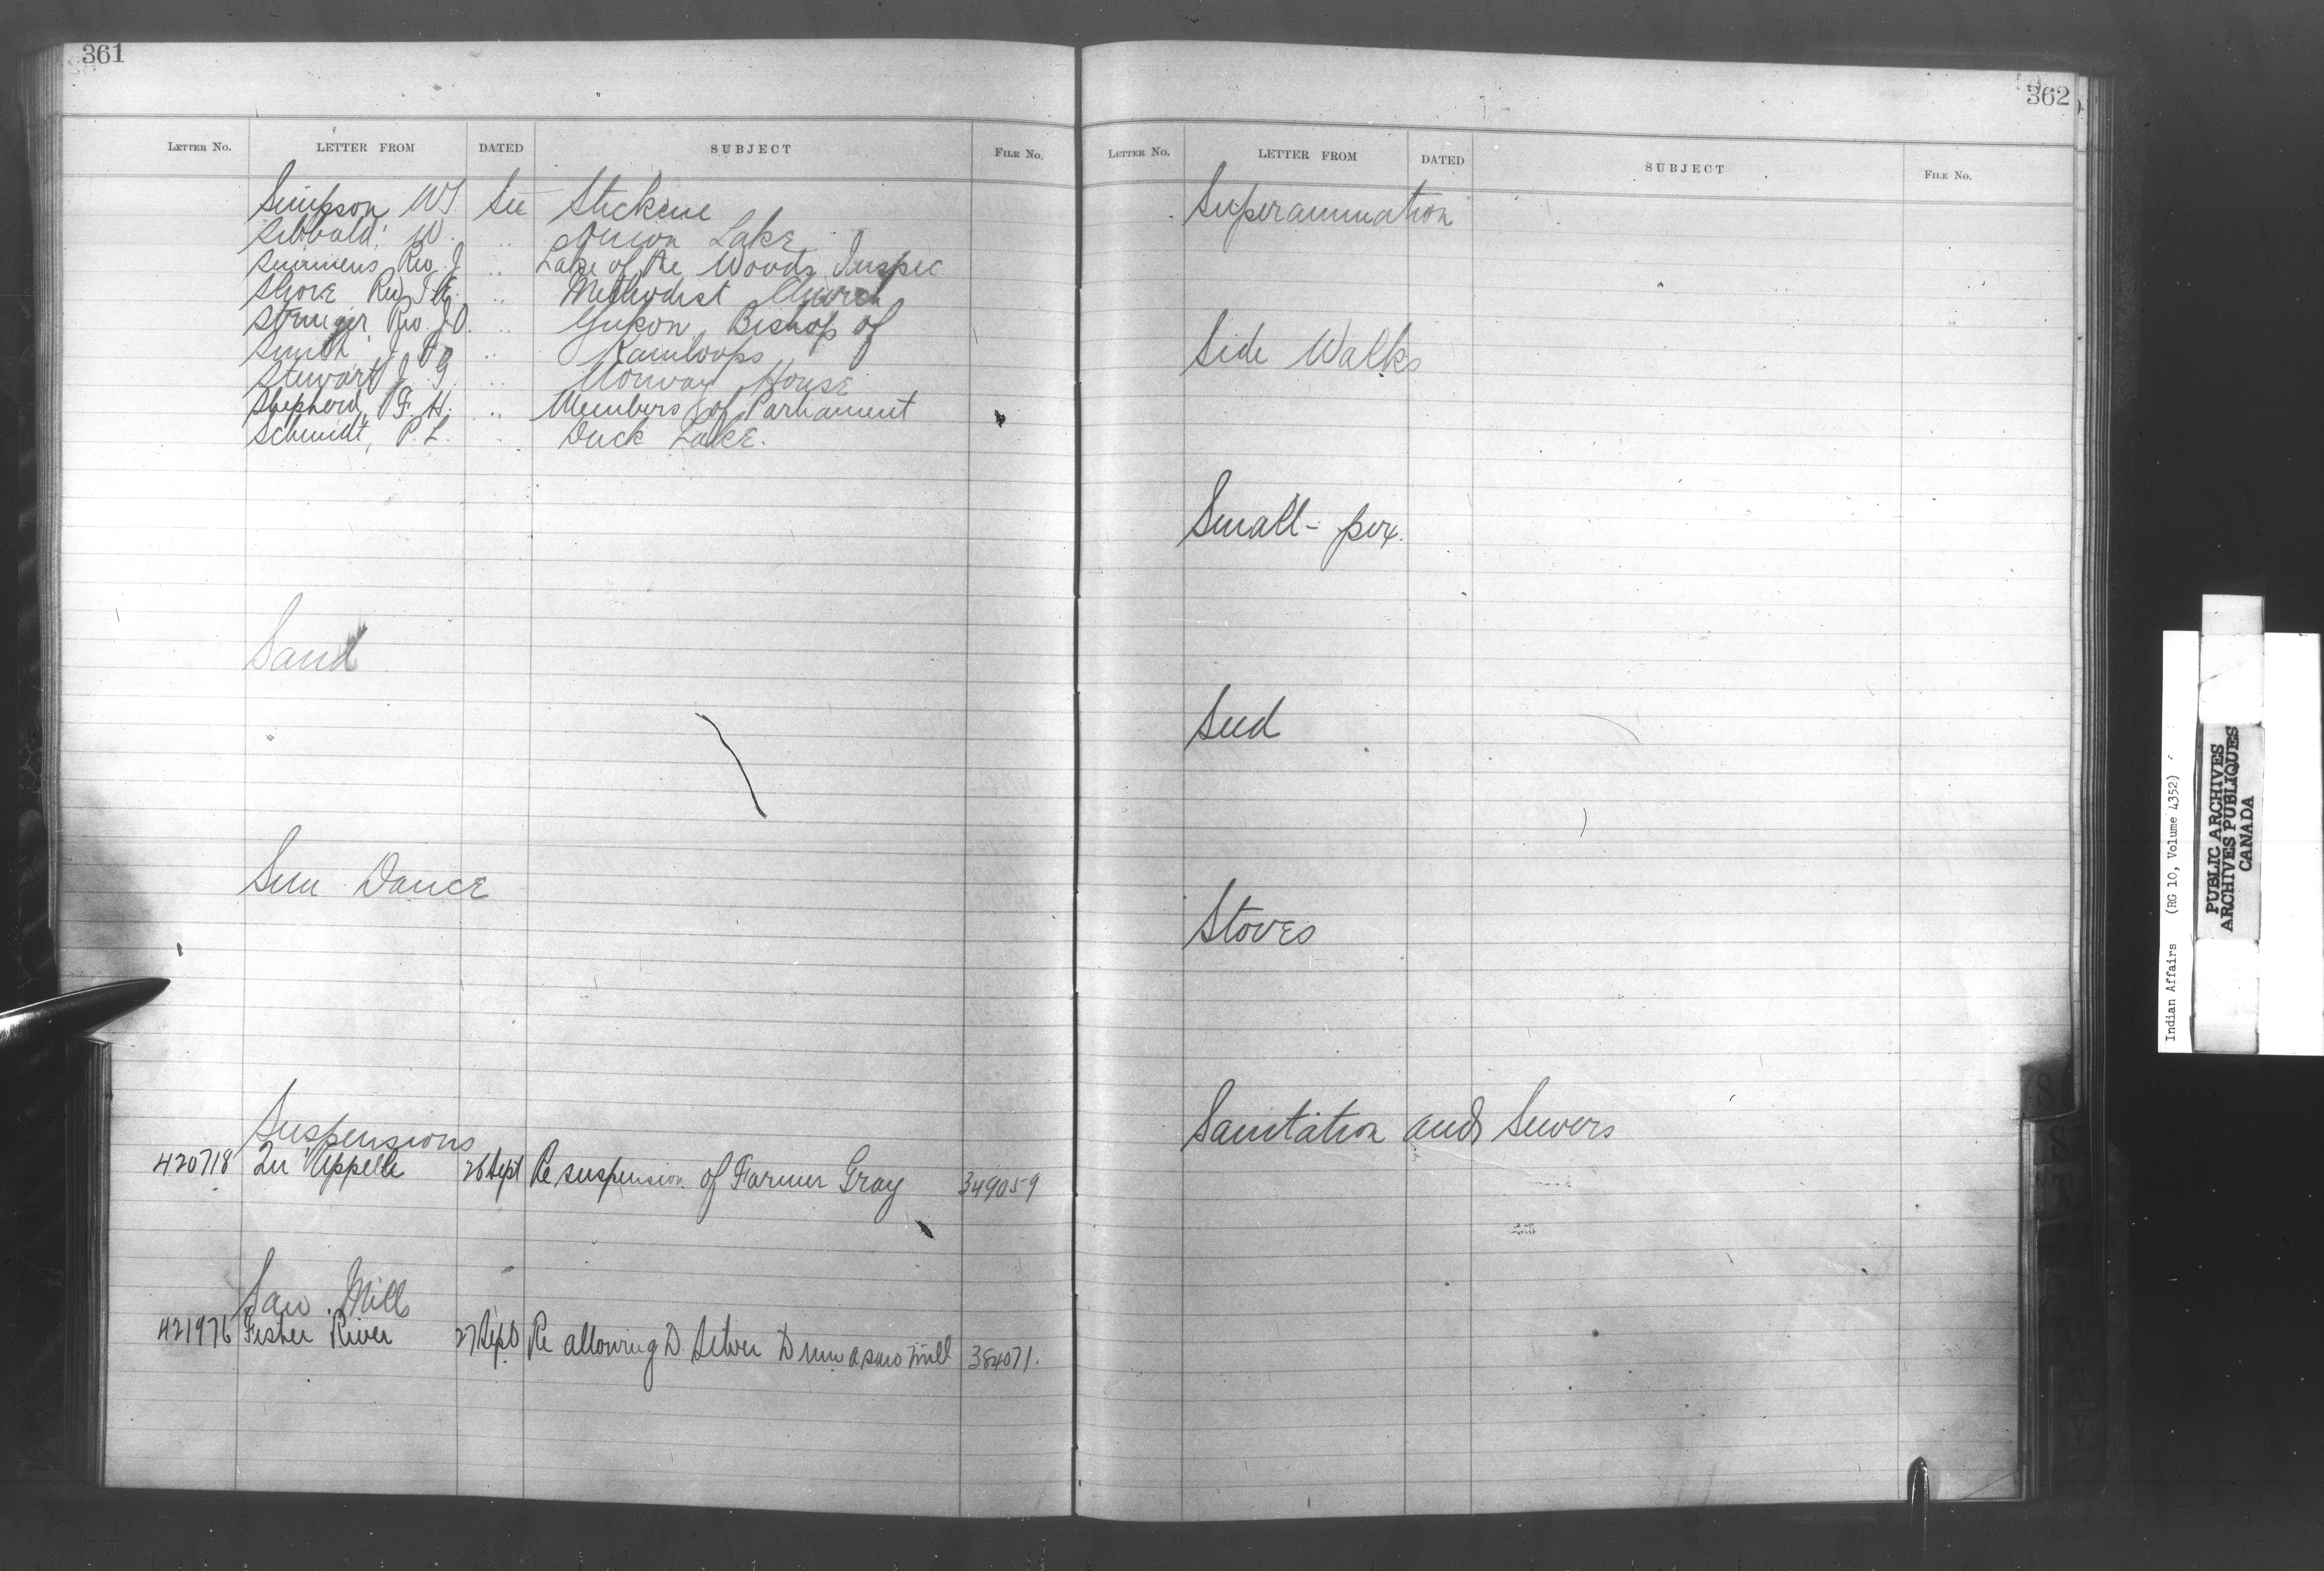 361
LETTER NO. LETTER FROM DATED SUBJECT FILE No.
Simpson W.S. See Stickine
Sibbald, W. " Onion Lake
Semmens Rev. J " Lake of the Woods Inspec
Shore Rev T.E. " Methodist Church
Stringer Rev. I.O. " Yukon, Bishop of
Smith J. F. " Kamloops
Stewart J. G. " Norway House
Shepherd, F. H. " Members of Parliament
Schmidt, P. L. " Duck Lake.
Sand
Sun Dance
Suspensions
420718 Qu'Appelle 26 Sept Re suspension of Farmer Gray 349059
Saw Mills
421976 Fisher River 27 Sept Re allowing D. Selver to run a saw mill 384071.
362
LETTER NO. LETTER FROM DATED SUBJECT FILE No.
Superannuation
Side Walks
Small-pox.
Seed
Stoves
Sanitation and Sewers
Indian Affairs (RG 10, Volume 4352)
PUBLIC ARCHIVES
ARCHIVES PUBLIQUES
CANADA